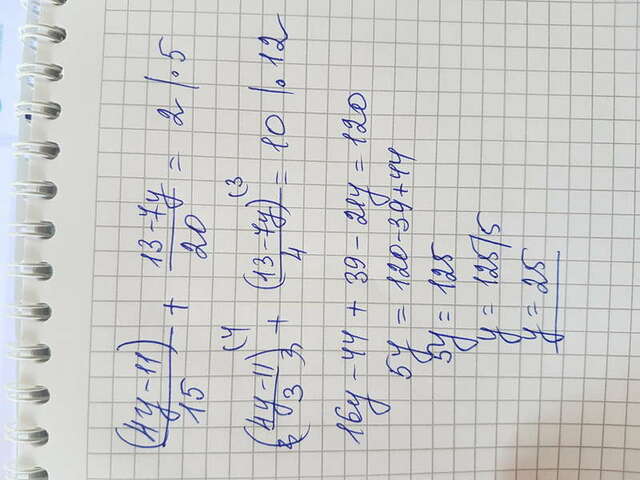 (4y-11)/15 + 13-7y/20 = 2 |·5
(4y-11/3 (4 + (13-7y)/4 (3 = 10 |·12
16y-44 + 39-21y = 120
5y = 120-39+44
5y = 125
y = 125/5
y = 25